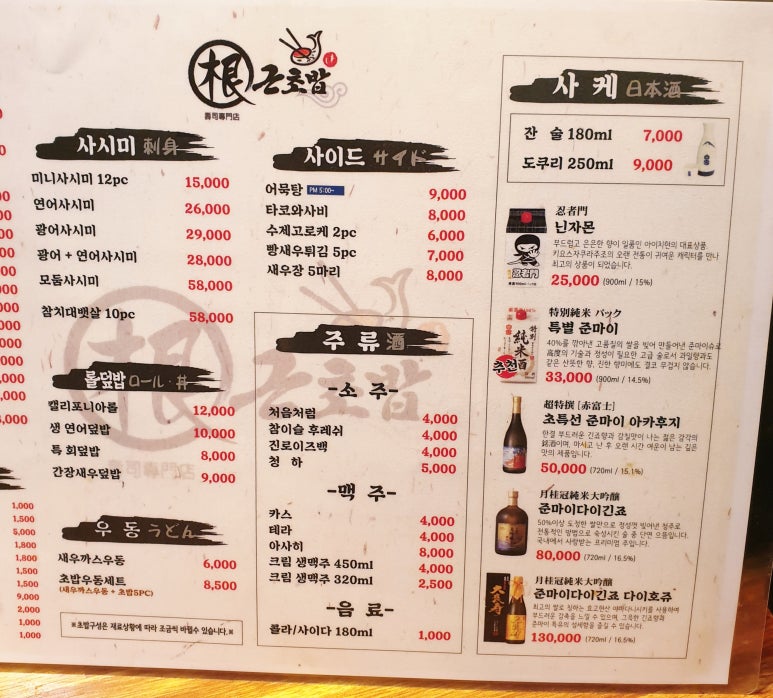 根 근초밥
壽司專門店
사시미 刺身
미니사시미 12pc 15,000
연어사시미 26,000
광어사시미 29,000
광어 + 연어사시미 28,000
모둠사시미 58,000
참치대뱃살 10pc 58,000
롤덮밥 ロール·丼
캘리포니아롤 12,000
생 연어덮밥 10,000
특 회덮밥 8,000
간장새우덮밥 9,000
우동 うどん
새우까스우동 6,000
초밥우동세트 8,500
(새우까스우동 + 초밥5PC)
※초밥구성은 재료상황에 따라 조금씩 바뀔수 있습니다.※
1,000
1,500
5,000
1,800
1,800
1,500
9,000
2,000
1,000
1,000
사이드 サイド
어묵탕 PM 5:00~ 9,000
타코와사비 8,000
수제고로케 2pc 6,000
빵새우튀김 5pc 7,000
새우장 5마리 8,000
주류 酒
-소주-
처음처럼 4,000
참이슬 후레쉬 4,000
진로이즈백 4,000
청하 5,000
-맥주-
카스 4,000
테라 4,000
아사히 8,000
크림 생맥주 450ml 4,000
크림 생맥주 320ml 2,500
-음료-
콜라/사이다 180ml 1,000
사케 日本酒
잔 술 180ml 7,000
도쿠리 250ml 9,000
忍者門
닌자몬
부드럽고 은은한 향이 일품인 아이치현의 대표상품
키요스자쿠라주조의 오랜 전통이 귀여운 캐릭터를 만나
최고의 상품이 되었습니다.
25,000 (900ml / 15%)
特別純米 パック
특별 준마이
40%를 깎아낸 고품질의 쌀을 빚어 만들어낸 준마이슈로
高度의 기술과 정성이 필요한 고급 술로서 과일향과도
같은 산뜻한 향, 진한 향미에도 결코 무겁지 않습니다.
추천
33,000 (900ml / 14.5%)
超特撰 [赤富士]
초특선 준마이 아카후지
한결 부드러운 긴죠향과 감칠맛이 나는 젊은 감각의
銘酒이며, 마시고 난 후 오랜 시간 여운이 남는 깊은
맛의 제품입니다.
50,000 (720ml / 15.1%)
月桂冠純米大吟醸
준마이다이긴죠
50%이상 도정한 쌀만으로 정성껏 빚어낸 청주로
전통적인 방법으로 숙성시킨 술 중 단연 으뜸입니다.
국내에서 사랑받는 프리미엄 주입니다.
80,000 (720ml / 16.5%)
月桂冠純米大吟醸
준마이다이긴죠 다이호쥬
최고의 쌀로 칭하는 효고현산 야마다니시키를 사용하여
부드러운 감촉을 느낄 수 있으며, 그윽한 긴죠향과
준마이 특유의 섬세함을 즐길 수 있습니다.
130,000 (720ml / 16.5%)